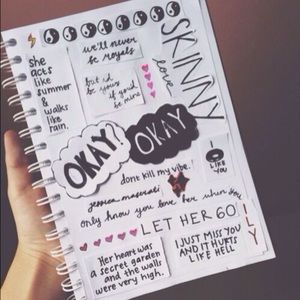 she
acts
like
summer
& walks
like
rain.
we'll never
be royals
but i'd
be yours
if you'd
be mine
SKINNY
love
OKAY?
OKAY
I
LIKE
YOU
dont kill my vibe!
only know you love her when you
LET HER GO!
I
L
Y
Her heart was
a secret garden
and the walls
were very high.
I JUST MISS YOU
AND IT HURTS
LIKE HELL